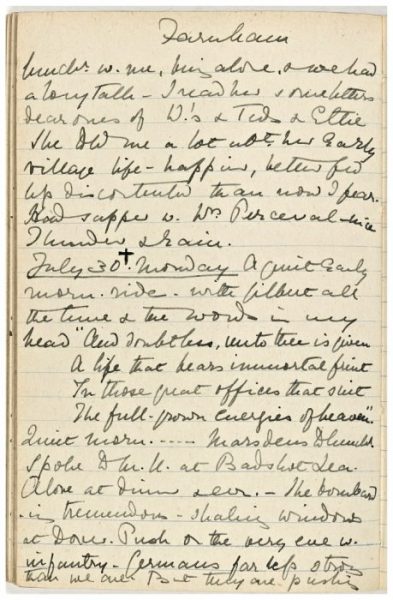 Farnham
lunch w. me, being alone, & we had
a long talk - I read her some letters
dear ones of W.'s & Teds & Ettie
She told me a lot abt. her early
village life - happier, better fed
less discontented than now I fear.
Had supper w. Mrs Perceval - nice
Thunder & rain.
July 30th Monday A quiet early
morn. ride - with Gilbert all
the time & the words in my
head "And doubtless, unto thee is given
A life that bears immortal fruit
In those great offices that suit
The full-grown energies of heaven".
Quiet morn. ---- Marsdens to lunch.
Spoke to M.U. at Badshot Lea.
Alone at dinn & evr. - The bombard
-ing tremendous - shaking windows
at Dover. Push on the very eve w.
infantry - Germans far less strong
than we are. But they are pushing